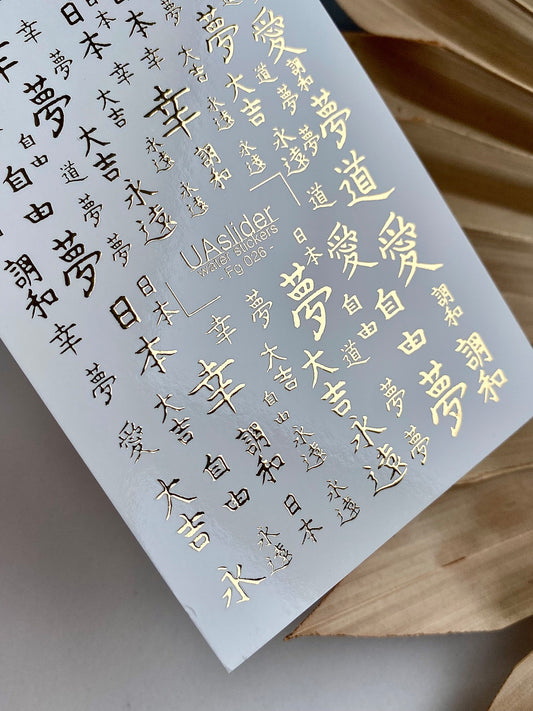 日本
幸
夢
愛
幸
夢
日本
幸
大吉
夢
調和
幸
大吉
道
夢
大吉
夢
大吉
幸
永遠
永遠
自由
大吉
永遠
調和
永遠
夢
道
自由
道
永遠
永遠
道
夢
夢
UAslider
water stickers
- Fg 026 -
日本
愛
愛
調和
夢
日本
日本
幸
夢
夢
自由
自由
調和
調和
幸
夢
愛
大吉
幸
大吉
自由
大吉
道
夢
夢
夢
大吉
自由
調和
永遠
永遠
永遠
日本
永遠
永